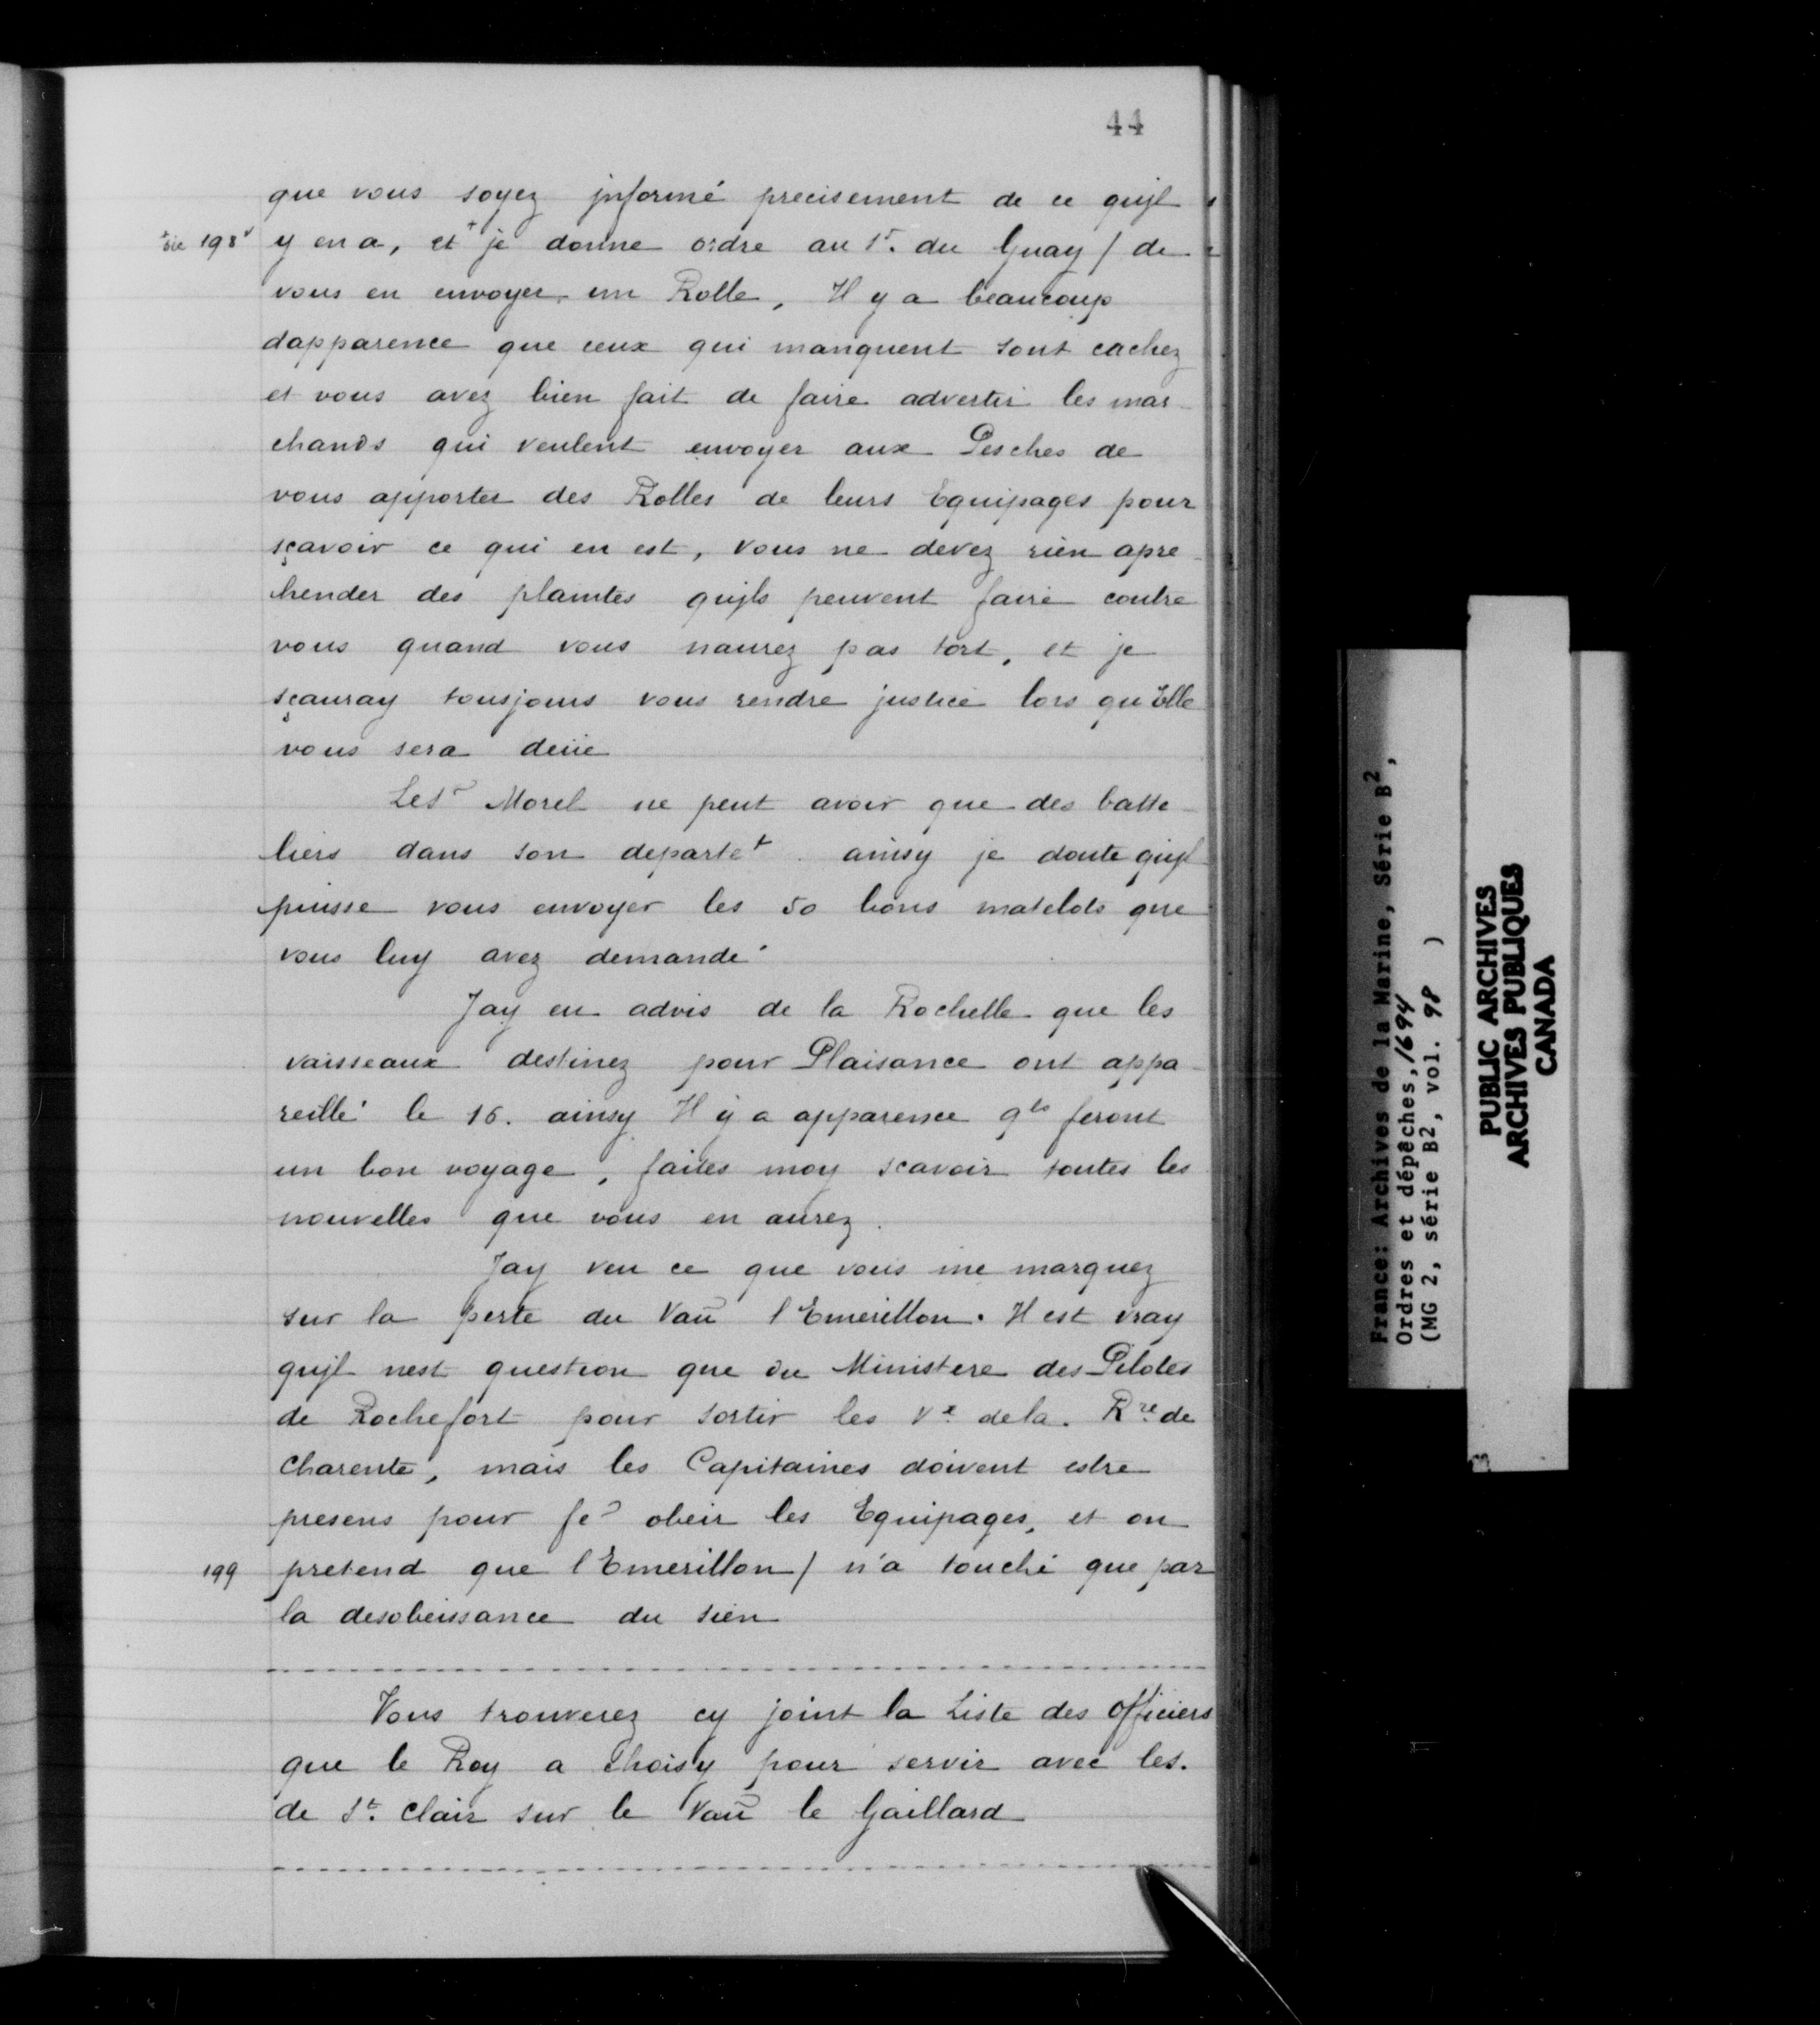 44
que vous soyez jnformé precisement de ce qujl
+sic 198v y en a, et+ je donne ordre au Sr. du Guay / de
vous en envoyer un Rolle, Il y a beaucoup
dapparence que ceux qui manquent sont cachez
et vous avez bien fait de faire advertir les mar-
chands qui veulent envoyer aux Pesches de
vous apporter des Rolles de leurs Equipages pour
sçavoir ce qui en est, vous ne devez rien apre-
hender des plaintes qujls peuvent faire contre
vous quand vous naurez pas tort, et je
sçauray tousjours vous rendre justice lors qu'Elle
vous sera deüe
Le Sr Morel ne peut avoir que des batte-
liers dans son departet. ainsy je doute qujl
puisse vous envoyer les 50 bons matelots que
vous luy avez demandé
Jay eu advis de la Rochelle que les
vaisseaux destinez pour Plaisance ont appa-
reillé le 16. ainsy Il y a apparence qls feront
un bon voyage, faites moy scavoir toutes les
nouvelles que vous en aurez.
Jay veu ce que vous me marquez
sur la perte du Vau l'Emerillon. Il est vray
qujl nest question que du Ministere des Pilotes
de Rochefort pour sortir les Vx dela Rre de
Charente, mais les Capitaines doivent estre
presens pour fe obeir les Equipages, et on
199 pretend que l'Emerillon / n'a touché que par
la desobeissance du sien
Vous trouverez cy joint la Liste des officiers
que le Roy a choisy pour servir avec les.
de St. Clair sur le Vau le Gaillard
France: Archives de la Marine, Série B2,
Ordres et dépêches, 1694
(MG 2, série B2, vol. 98 )
PUBLIC ARCHIVES
ARCHIVES PUBLIQUES
CANADA